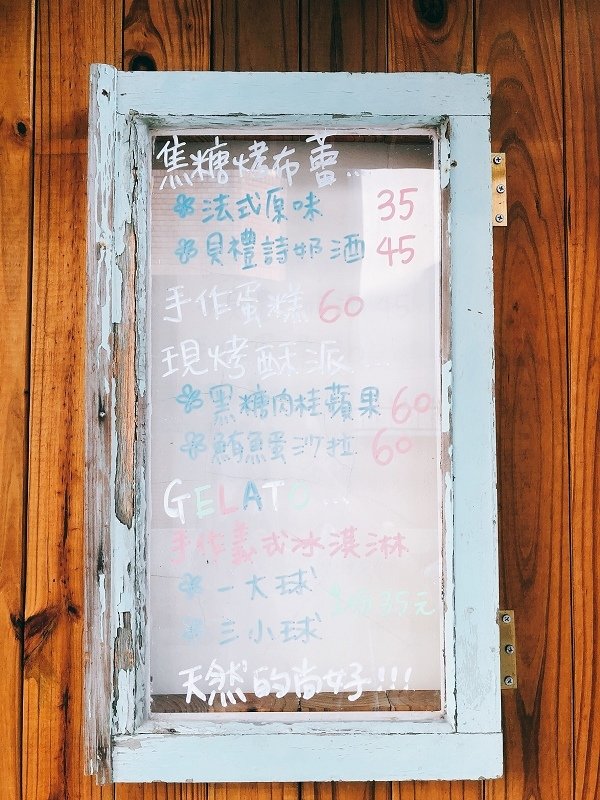 焦糖烤布蕾...
法式原味 35
貝禮詩奶酒 45
手作蛋糕 60
現烤酥派...
黑糖肉桂蘋果 60
鮪魚蛋沙拉 60
GELATO...
手作義式冰淇淋
一大球
35元
三小球
天然的尚好!!!